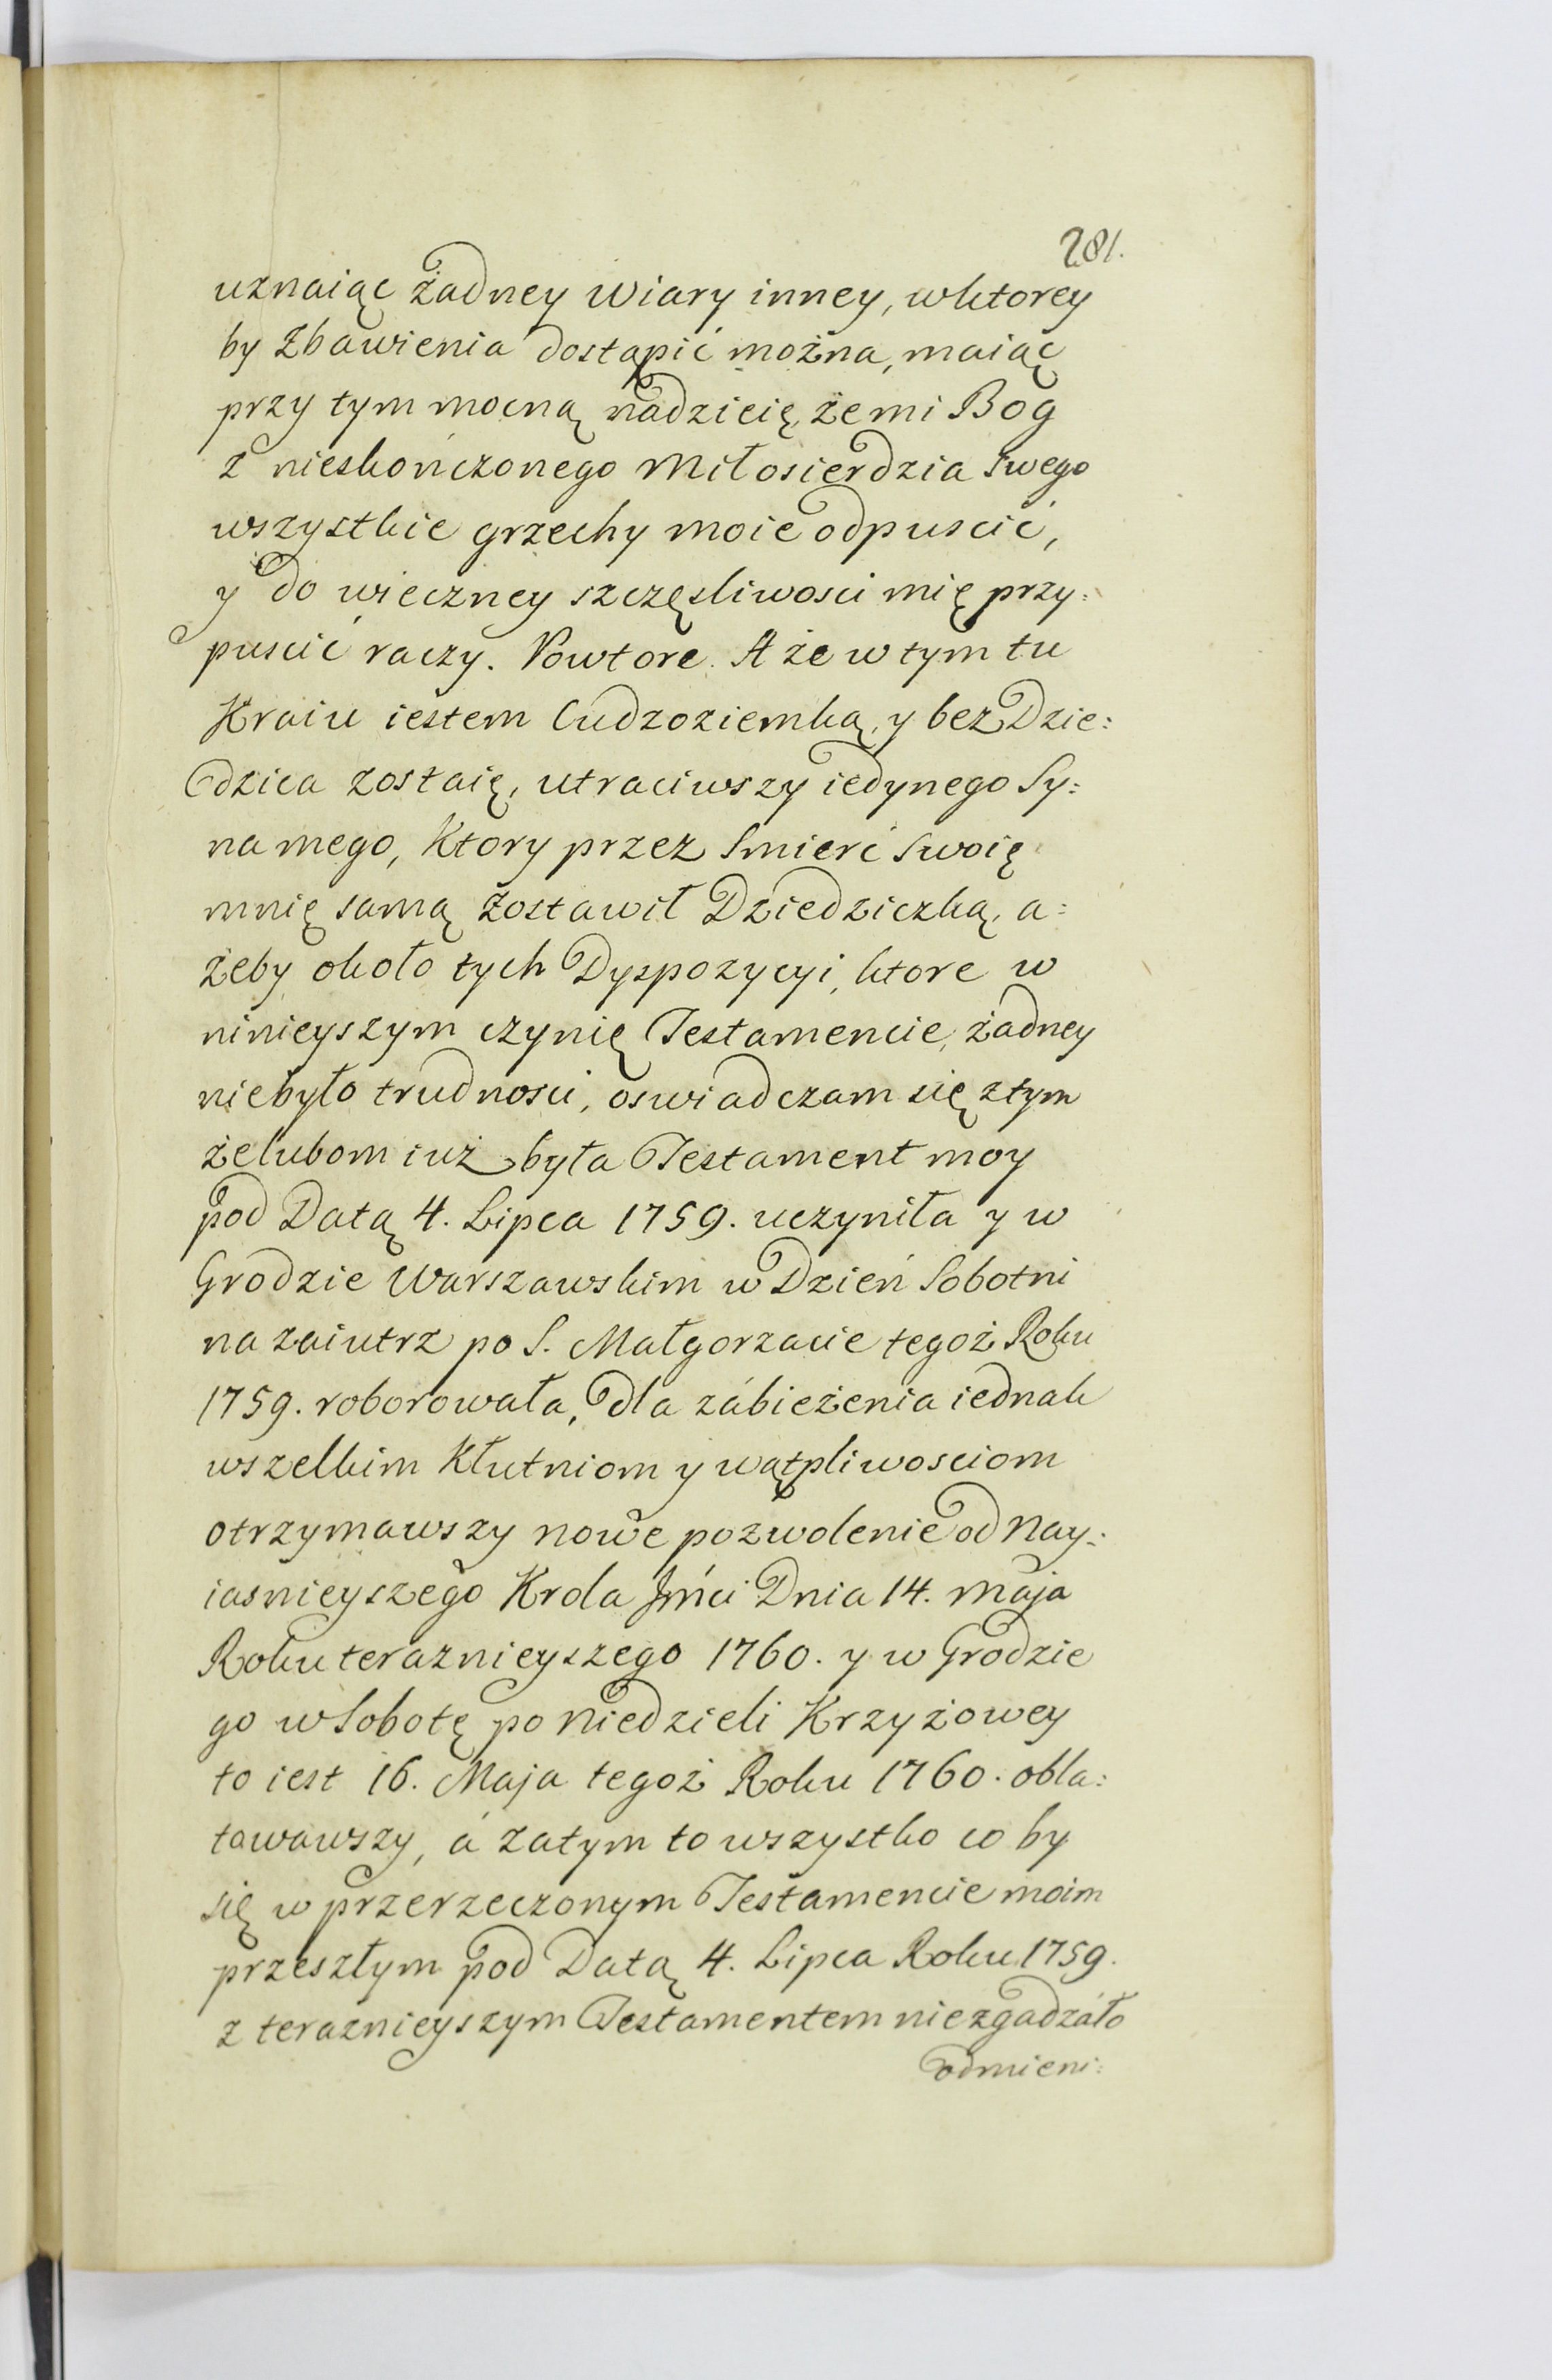 281.
uznaiąc żadney Wiary inney, wktorey
by Zbawienia dostąpić można, maiąc
przy tym mocną nadzieię, żemi Bog
z nieskończonego Miłosierdzia swego
wszystkie grzechy moie odpuscić,
y do wieczney szczęsliwosci mię przy:
puscić raczy. Powtore. A że w tym tu
Kraiu iestem Cudzoziemką, y bez Dzie:
dzica zostaię, utraciwszy iedynego Sy:
na mego, Ktory przez Smierć swoię
mnię samą zostawił Dziedziczką, a:
żeby około tych Dyspozycyi, ktore w
ninieyszym czynię Testamencie, żadney
niebyło trudnosci, oswiadczam się ztym
żelubom iuż była Testament moy
pod Datą 4. Lipca 1759. uczyniła y w
Grodzie Warszawskim w Dzień Sobotni
na zaiutrz po S. Małgorzacie tegoż Roku
1759. roborowała, dla zábieżenia iednak
wszelkim Kłutniom y wątpliwosciom
otrzymawszy nowe pozwolenie od Nay:
iasnieyszego Krola Jmci Dnia 14. Maja
Roku teraznieyszego 1760. y w Grodzie
go wSobotę po Niedzieli Krzyżowey
to iest 16. Maja tegoż Roku 1760. obla:
towawszy, á zatym to wszystko co by
się w przerzeczonym Testamencie moim
przeszłym pod Datą 4. Lipca Roku 1759.
z teraznieyszym Testamentem niezgadzáło
odmieni: